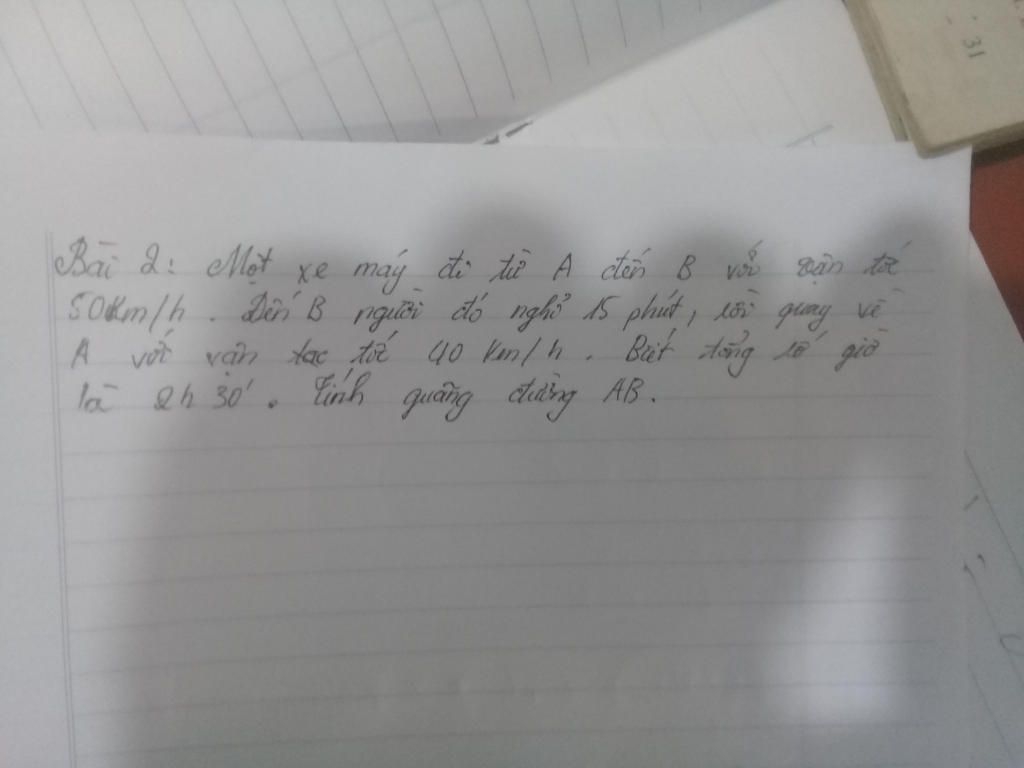 31
Bài 2: Một xe máy đi từ A đến B với vận tốc
50km/h. Đến B người đó nghỉ 15 phút, rồi quay về
A với vận tốc 40 km/h. Biết tổng số giờ
là 2h 30'. Tính quãng đường AB.